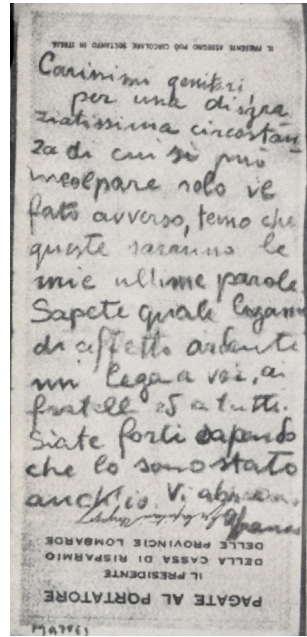 IL PRESENTE ASSEGNO PUÒ CIRCOLARE SOLTANTO IN ITALIA
Carissimi genitori
per una disgra
ziatissima circostan
za di cui si può
incolpare solo il
fato avverso, temo che
queste saranno le
mie ultime parole.
Sapete quale legame
di affetto ardente
mi lega a voi, ai
fratelli ed a tutti.
Siate forti sapendo
che lo sono stato
anch'io. Vi abbraccio
Franco
DELLE PROVINCIE LOMBARDE
DELLA CASSA DI RISPARMIO
IL PRESIDENTE
PAGATE AL PORTATORE
MATTEI